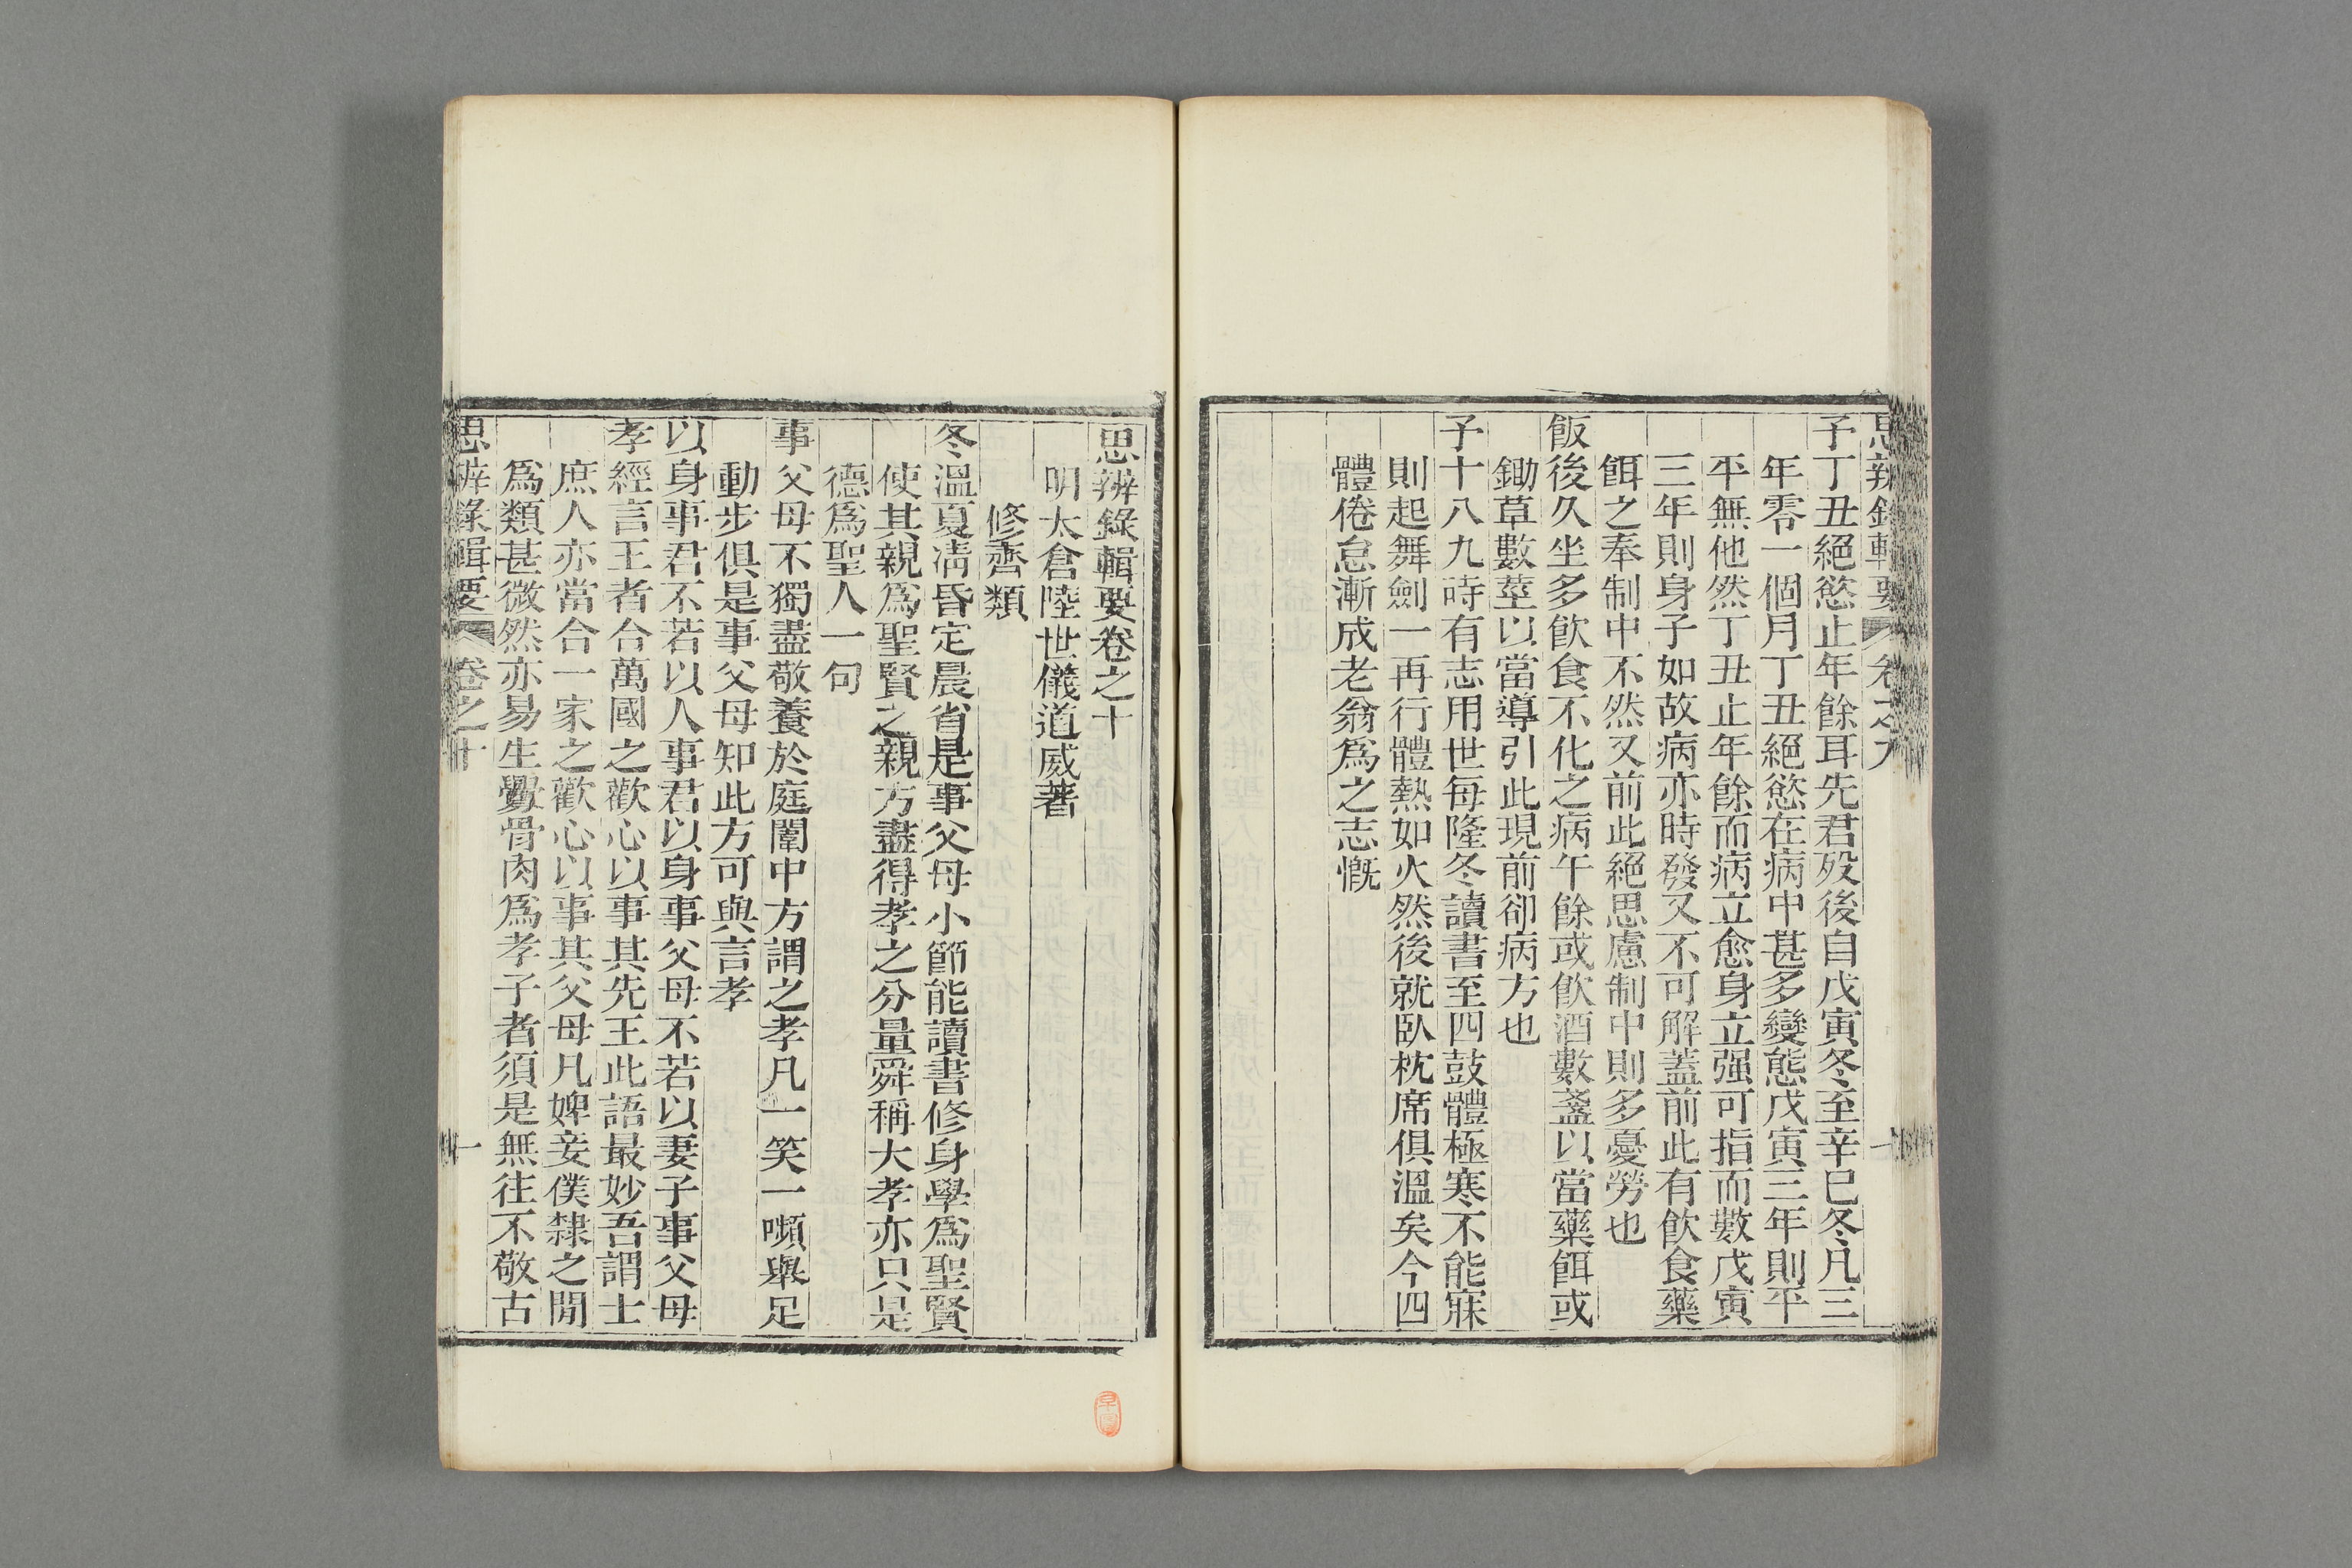 思辨錄輯要 卷之九
子丁丑絕慾止年餘耳先君歿後自戊寅冬至辛巳冬凡三
年零一個月丁丑絕慾在病中甚多變態戊寅三年則平
平無他然丁丑止年餘而病立愈身立强可指而數戊寅
三年則身子如故病亦時發又不可解蓋前此有飲食藥
餌之奉制中不然又前此絕思慮制中則多憂勞也
飯後久坐多飲食不化之病午餘或飲酒數盞以當藥餌或
鋤草數莖以當導引此現前卻病方也
子十八九時有志用世每隆冬讀書至四鼓體極寒不能寐
則起舞劍一再行體熱如火然後就臥枕席俱溫矣今四
體倦怠漸成老翁爲之志慨
思辨錄輯要卷之十
明太倉陸世儀道威著
修齊類
冬溫夏凊昏定晨省是事父母小節能讀書修身學爲聖賢
使其親爲聖賢之親方盡得孝之分量舜稱大孝亦只是
德爲聖人一句
事父母不獨盡敬養於庭闈中方謂之孝凡一笑一嚬舉足
動步俱是事父母知此方可與言孝
以身事君不若以人事君以身事父母不若以妻子事父母
孝經言王者合萬國之歡心以事其先王此語最妙吾謂士
庶人亦當合一家之歡心以事其父母凡婢妾僕隸之閒
爲類甚微然亦易生釁骨肉爲孝子者須是無往不敬古
思辨錄輯要 卷之十 一